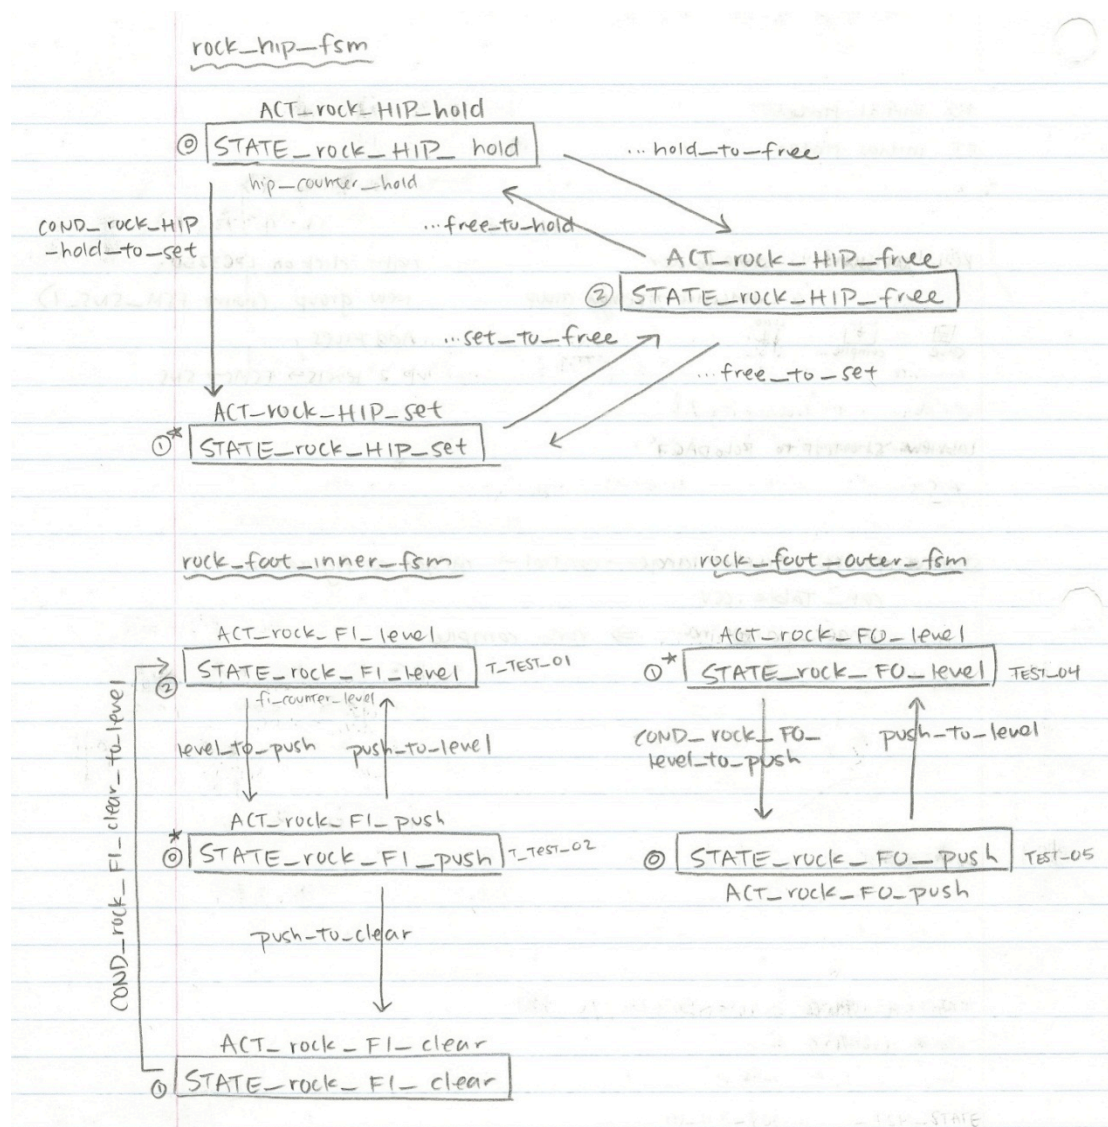 rock_hip_fsm
ACT_rock_HIP_hold
⓪ STATE_rock_HIP_hold
hip_counter_hold
...hold_to_free
COND_rock_HIP
_hold_to_set
...free_to_hold
ACT_rock_HIP_free
② STATE_rock_HIP_free
...set_to_free
...free_to_set
ACT_rock_HIP_set
①* STATE_rock_HIP_set
rock_foot_inner_fsm
ACT_rock_FI_level
② STATE_rock_FI_level T_TEST_01
fi_counter_level
level_to_push
push_to_level
ACT_rock_FI_push
* ⓪ STATE_rock_FI_push T_TEST_02
push_to_clear
COND_rock_FI_clear_to_level
ACT_rock_FI_clear
① STATE_rock_FI_clear
rock_foot_outer_fsm
ACT_rock_FO_level
①* STATE_rock_FO_level TEST_04
COND_rock_FO_
level_to_push
push_to_level
⓪ STATE_rock_FO_push TEST_05
ACT_rock_FO_push